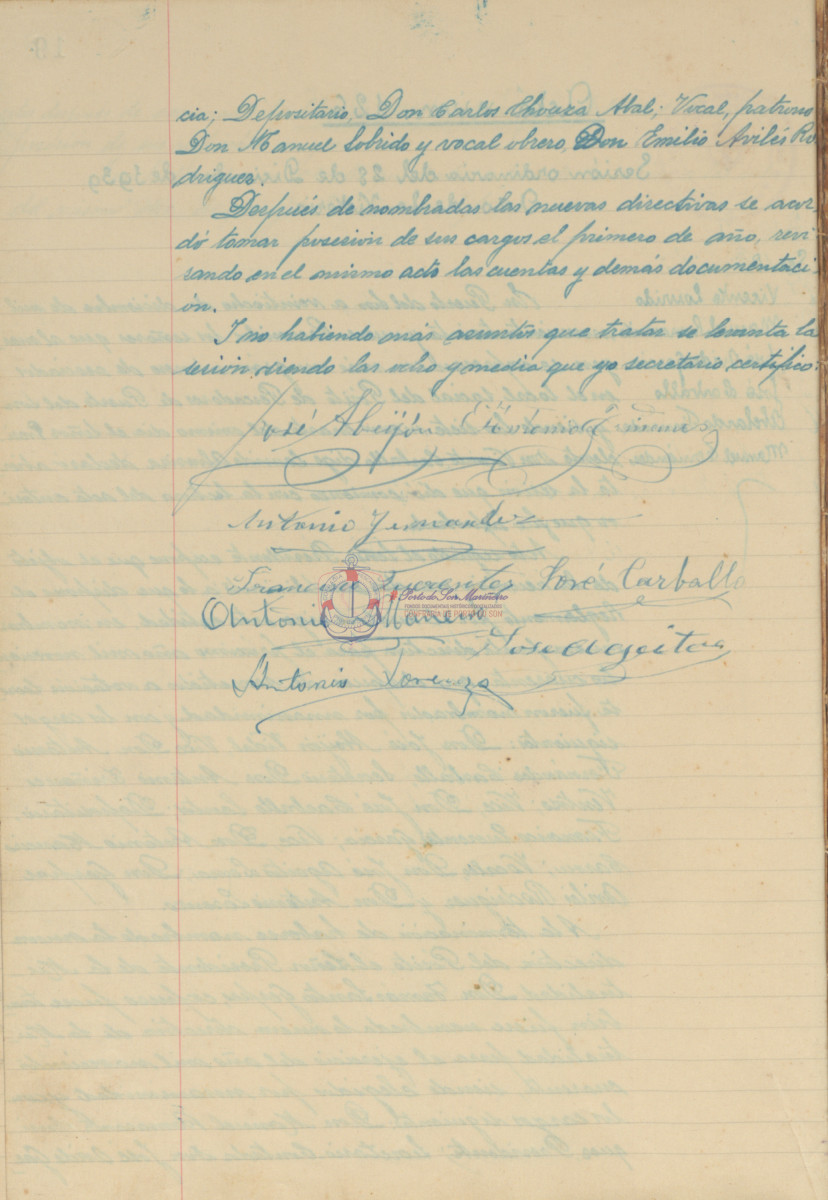 cia; Depositario, Don Carlos Chouza Abal; Vocal, patrono
Don Manuel Lobrido y vocal obrero, Don Emilio Avilés Ro
driguez.
Después de nombradas las nuevas directivas se acor
dó tomar posesión de sus cargos el primero de año, revi
sando en el mismo acto las cuentas y demás documentaci
ón.
I no habiendo más asuntos que tratar se levanta la
sesión, siendo las ocho y media que yo secretario, certifico.
José Abeijón
Antonio Fernandez
Francisco José Carballo
Porto do Son Mariñeiro
Antonio Maneiro
Jose Ageitos
Antonio Lorenzo